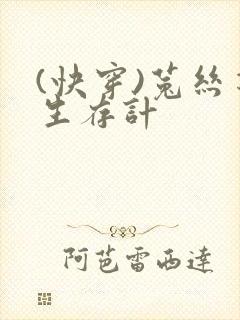 (快穿)菟絲
生存計
阿芭雷西達